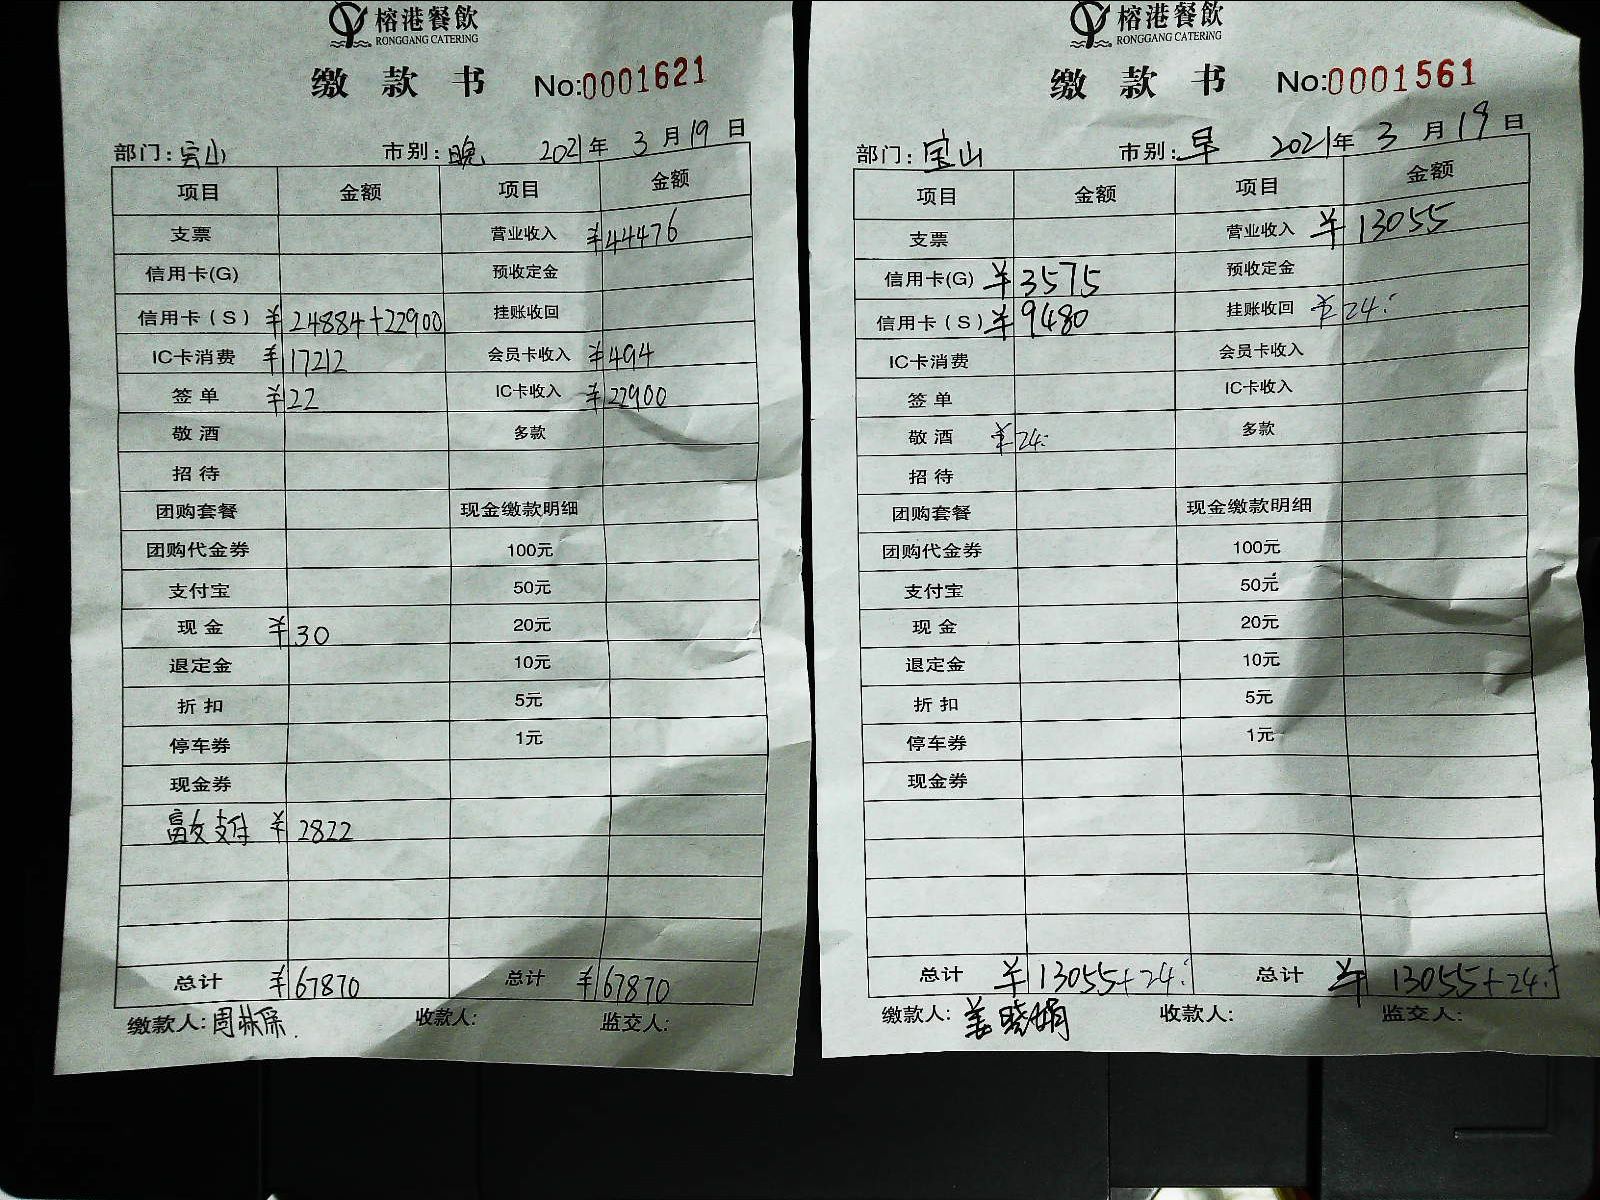 榕港餐飲
RONGGANG CATERING
缴款书 No:0001621
部门：宝山 市别：晚 2021年3月19日
项目 金额 项目 金额
支票 营业收入 ¥44476
信用卡(G) 预收定金
信用卡（S） ¥24884+22900 挂账收回
IC卡消费 ¥17212 会员卡收入 ¥494
签单 ¥22 IC卡收入 ¥22900
敬酒 多款
招待
团购套餐 现金缴款明细
团购代金券 100元
支付宝 50元
现金 ¥30 20元
退定金 10元
折扣 5元
停车券 1元
现金券
支付 ¥2822
总计 ¥67870 总计 ¥67870
缴款人：周林深. 收款人： 监交人：
榕港餐飲
RONGGANG CATERING
缴款书 No:0001561
部门：宝山 市别：早 2021年3月19日
项目 金额 项目 金额
支票 营业收入 ¥13055
信用卡(G) ¥3575 预收定金
信用卡（S） ¥9480 挂账收回 ¥24.
IC卡消费 会员卡收入
签单 IC卡收入
敬酒 ¥24. 多款
招待
团购套餐 现金缴款明细
团购代金券 100元
支付宝 50元
现金 20元
退定金 10元
折扣 5元
停车券 1元
现金券
总计 ¥13055+24. 总计 ¥13055+24.
缴款人：姜晓娟 收款人： 监交人：